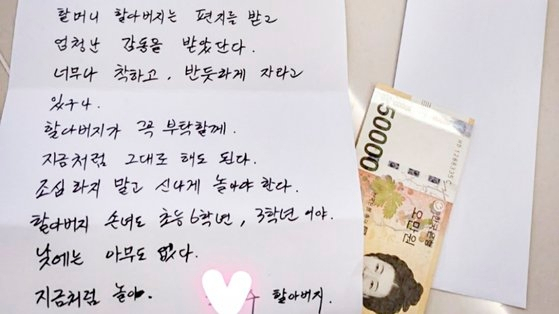 할머니 할아버지는 편지를 받고
엄청난 감동을 받았단다.
너무나 착하고, 반듯하게 자라고
있구나.
할아버지가 꼭 부탁할께.
지금처럼 그대로 해도 된다.
조심 하지 말고 신나게 놀아야 한다.
할아버지 손녀도 초등 6학년, 3학년 이야.
낮에는 아무도 없다.
지금처럼 놀아.
수 할아버지.
50000
한국은행
오만원